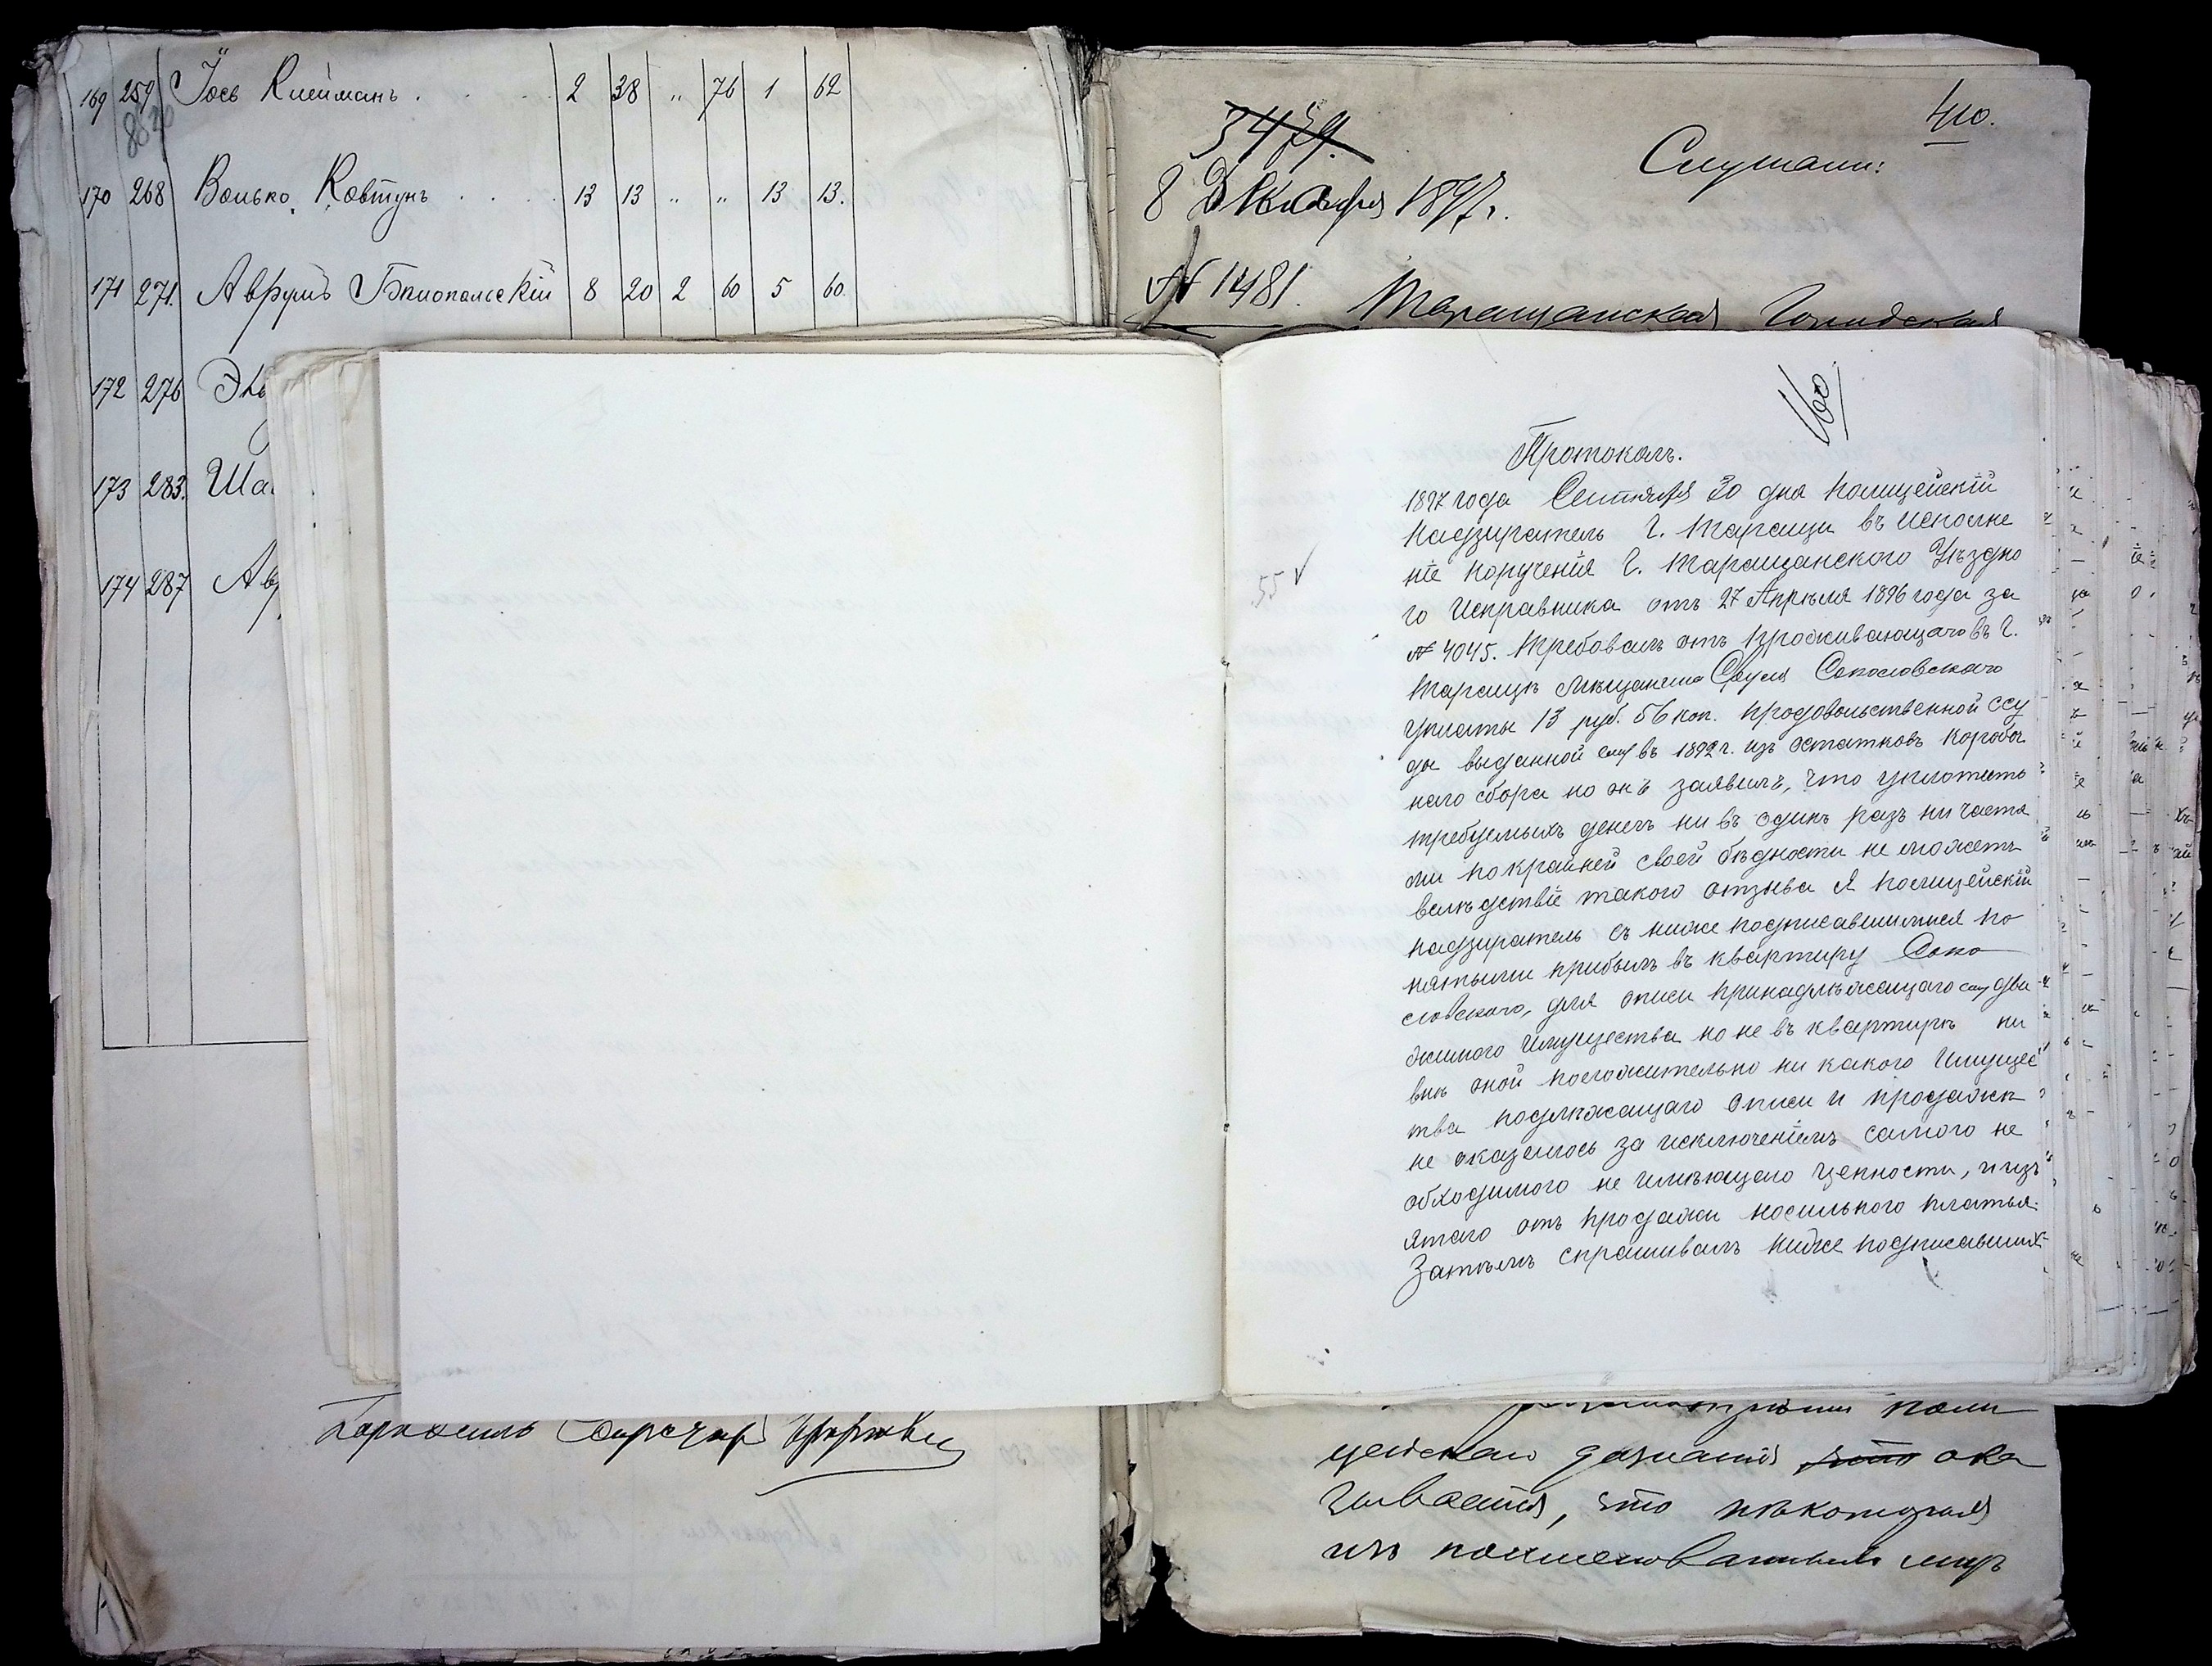 169 259 Іось Клейманъ . . . 2 38 „ 76 1 62
170 268 Волько Ковтунъ . . . 13 13 „ „ 13 13.
171 271. Аврумъ Бялопольскій 8 20 2 60 5 60
172 276
173 283.
174 287
3479.
410.
Слушали:
8 Декабря 1897 г.
№ 1481.
Таращанская Городская
160
Протоколъ.
1897 года Сентября 30 дня Полицейскій
Надзиратель г. Таращи въ исполне
ніе порученія г. Таращанскаго Уѣздно
го Исправника отъ 27 Апрѣля 1896 года за
№ 4045. требовалъ отъ проживающаго въ г.
55 ✓
Таращѣ мѣщанина Сруля Соколовскаго
уплаты 13 руб. 56 коп. продовольственной ссу
ды выданной ему въ 1892 г. изъ остатковъ коробоч
наго сбора но онъ заявилъ, что уплотить
требуемыхъ денегъ ни въ одинъ разъ ни частя
ми по крайней своей бѣдности не можетъ
вслѣдствіе такого отзыва я Полицейскій
надзиратель съ ниже подписавшимися по
нятыми прибылъ въ квартиру Соко
ловскаго, для описи принадлѣжащаго ему дви
жимого имущества но не въ квартирѣ ни
внѣ оной положительно ни какого имущес
тва подлѣжащаго описи и продажи
не оказалось за исключеніемъ самого не
обходимого не имѣющаго ценности, и изъ
ятаго отъ продажи носильного платья.
Затѣмъ спрашивалъ ниже подписавших
поли
цейскаго дознанія ока
зывается, что нѣкоторыя
изъ поименованныхъ лицъ